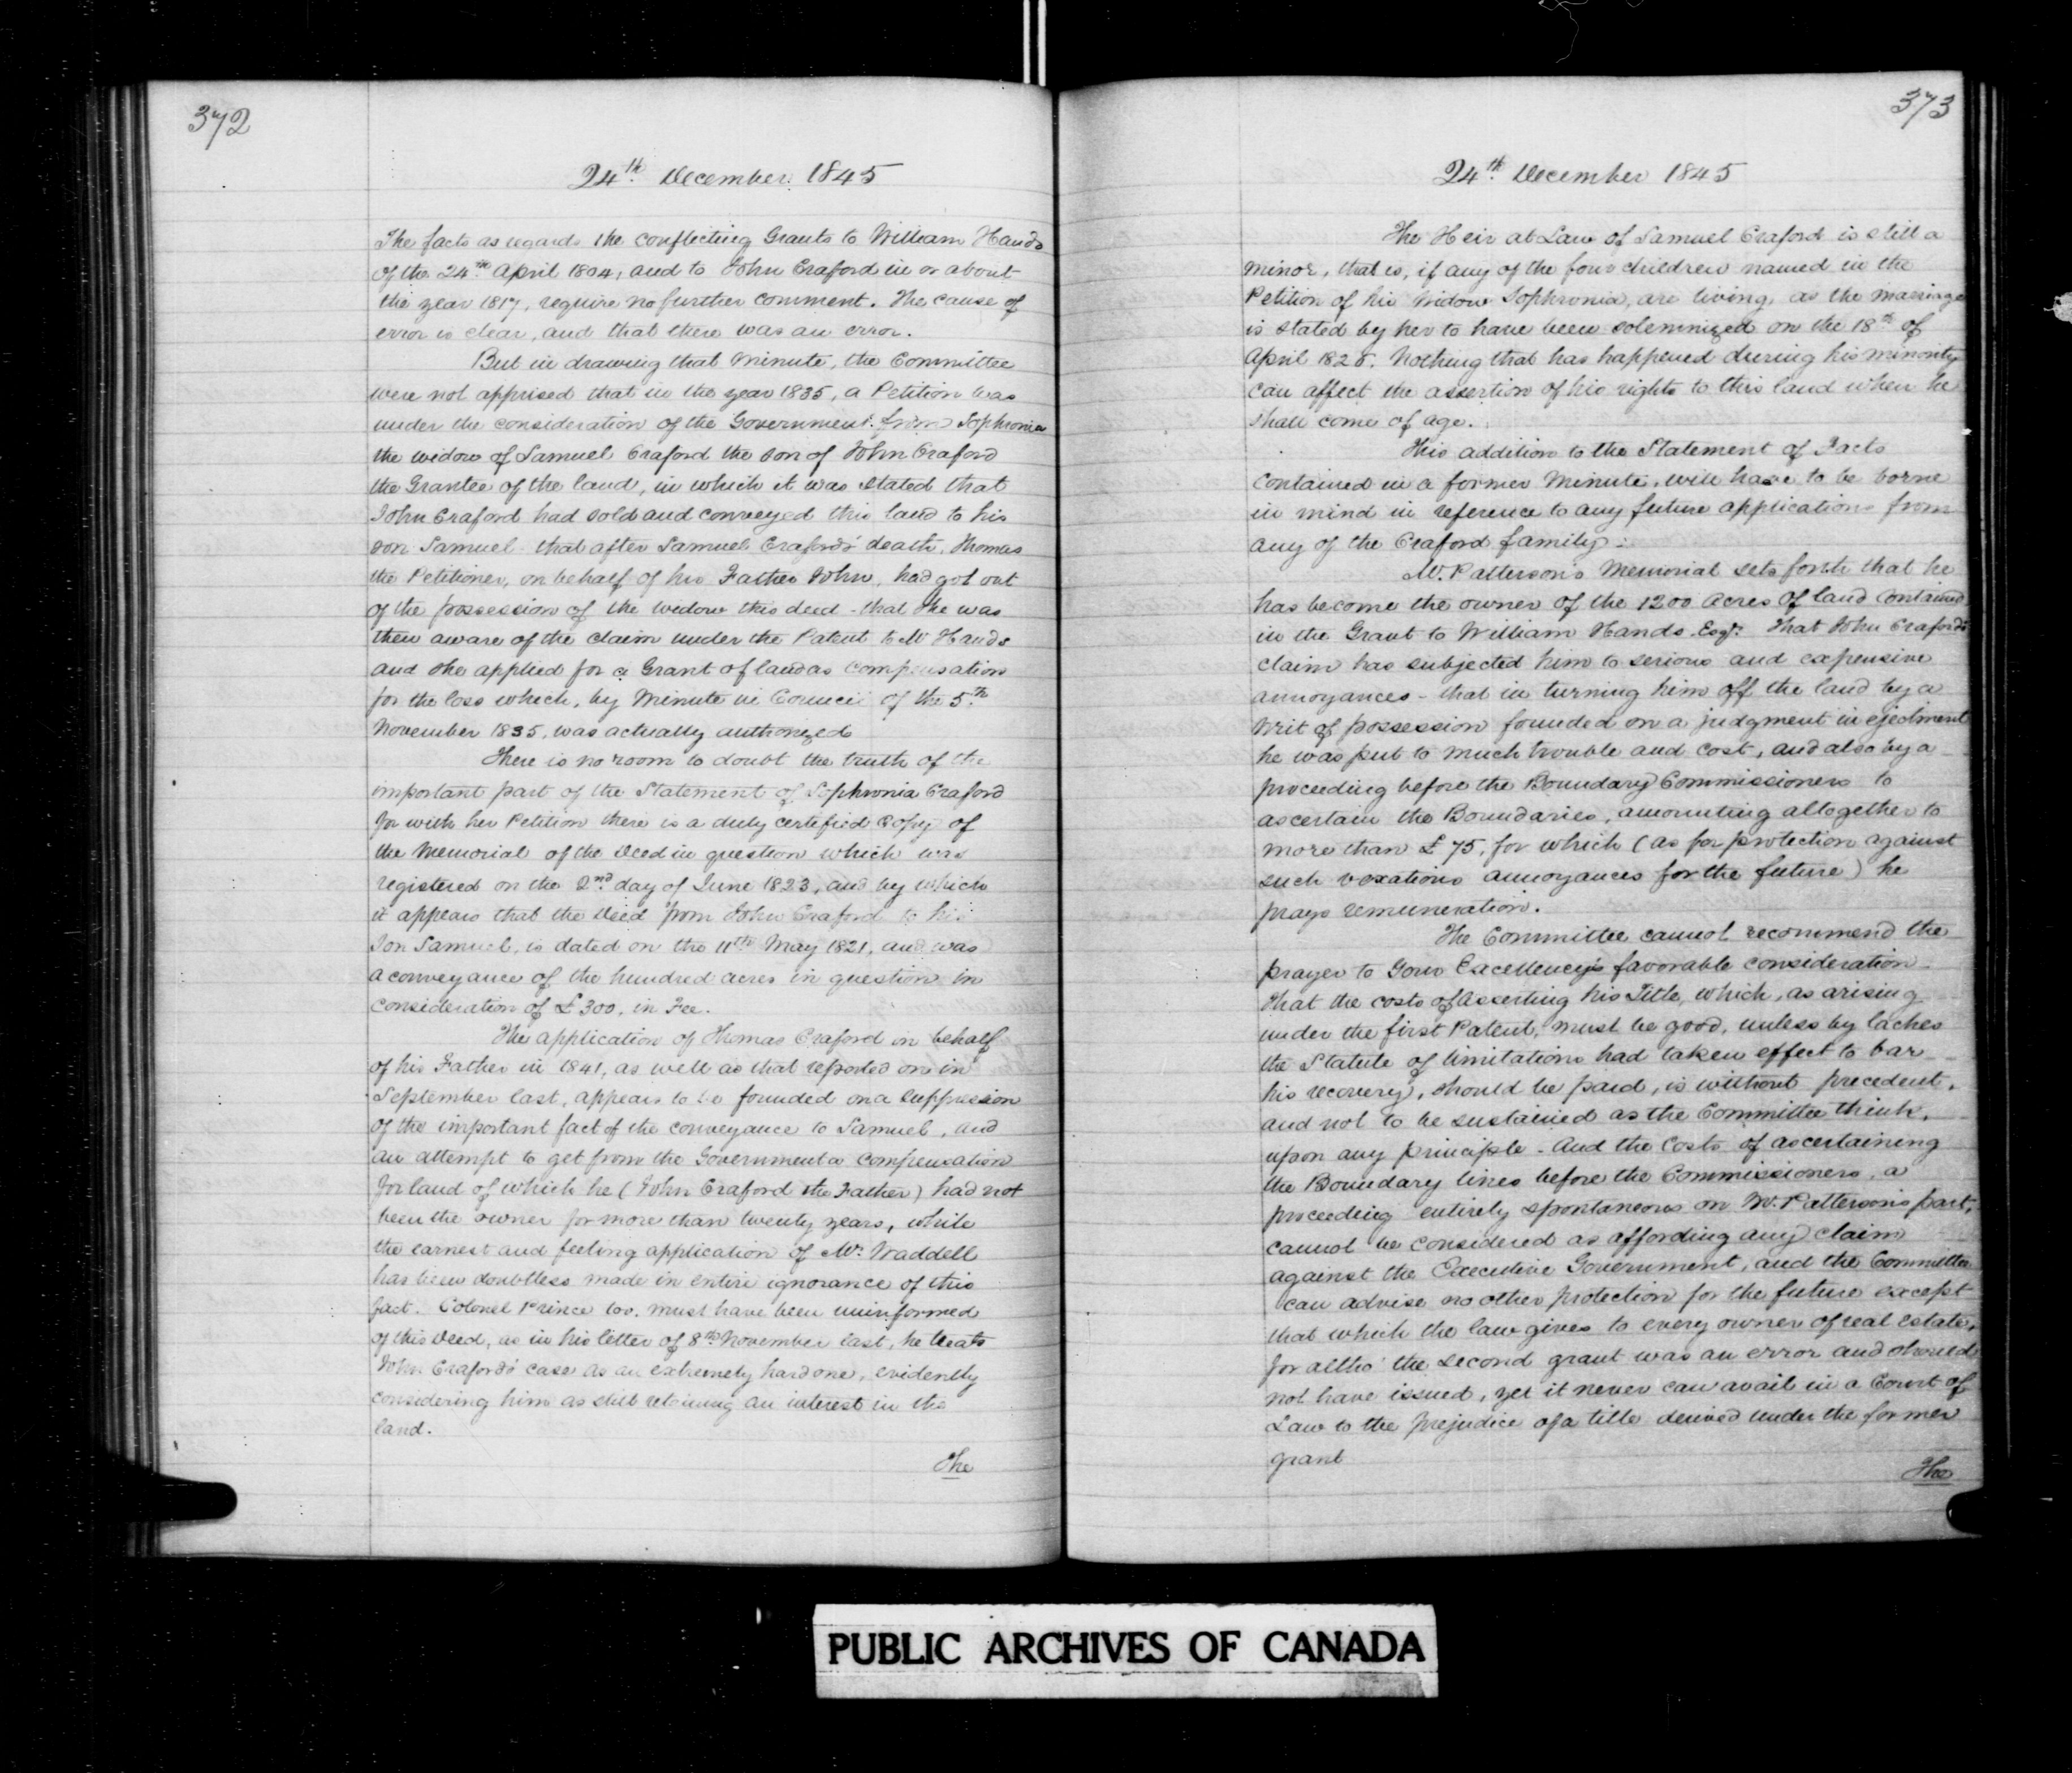 372
24th December 1845
The facts as regards the conflecting Grants to William Hands
of the 24th April 1804, and to John Craford in or about
the year 1817, require no further comment. The cause of
error is clear, and that there was an error.
But in drawing that Minute, the Committee
were not apprised that in the year 1835, a Petition was
under the consideration of the Government from Sophronia
the widow of Samuel Craford the son of John Craford
the Grantee of the land, in which it was stated that
John Craford had sold and conveyed this land to his
son Samuel - that after Samuel Craford's death, Thomas
the Petitioner, on behalf of his Father John, had got out
of the possession of the widow this deed - that she was
then aware of the claim under the Patent to Mr Hands
and she applied for a Grant of land as compensation
for the loss which, by Minute in Council of the 5th
November 1835, was actually authorized
There is no room to doubt the truth of the
important part of the Statement of Sophronia Craford
for with her Petition there is a duly certified Copy of
the Memorial of the Deed in question which was
registered on the 2nd day of June 1823, and by which
it appears that the Deed from John Craford to his
Son Samuel, is dated on the 11th May 1821, and was
a conveyance of the hundred acres in question in
consideration of £300, in Fee.
The application of Thomas Craford in behalf
of his Father in 1841, as well as that reported on in
September last, appears to be founded on a suppression
of the important fact of the conveyance to Samuel, and
an attempt to get from the Government a compensation
for land of which he (John Craford the Father) had not
been the owner for more than twenty years, while
the earnest and feeling application of Mr. Waddell
has been doubtless made in entire ignorance of this
fact. Colonel Prince too, must have been uninformed
of this Deed, as in his letter of 8th November last, he treats
John Craford's case as an extremely hard one, evidently
considering him as still retaining an interest in the
land.
The
373
24th December 1845
The Heir at Law of Samuel Craford is still a
minor, that is, if any of the four children named in the
Petition of his Widow Sophronia, are living, as the marriage
is stated by her to have been solemnized on the 18th of
April 1825. Nothing that has happened during his minority
can affect the assertion of his rights to this land when he
shall come of age.
This addition to the Statement of Facts
contained in a former Minute, will have to be borne
in mind in reference to any future applications from
any of the Craford family.
Mr. Patterson's Memorial sets forth that he
has become the owner of the 1200 acres of land contained
in the Grant to William Hands Esqr. That John Craford's
claim has subjected him to serious and expensive
annoyances - that in turning him off the land by a
Writ of possession founded on a judgment in ejectment
he was put to much trouble and cost, and also by a
proceeding before the Boundary Commissioners to
ascertain the Boundaries, amounting altogether to
more than £75, for which (as for protection against
such vexatious annoyances for the future) he
prays remuneration.
The Committee cannot recommend the
prayer to Your Excellency's favorable consideration
That the costs of asserting his Title, which, as arising
under the first Patent, must be good, unless by laches
the Statute of limitations had taken effect to bar
his recovery), should be paid, is without precedent,
and not to be sustained as the Committee think,
upon any principle - And the Costs of ascertaining
the Boundary lines before the Commissioners, a
proceeding entirely spontaneous on Mr. Patterson's part,
cannot be considered as affording any claim
against the Executive Government, and the Committee
can advise no other protection for the future except
that which the law gives to every owner of real estate,
for altho' the second grant was an error and should
not have issued, yet it never can avail in a Court of
Law to the prejudice of a title derived under the former
grant
The
PUBLIC ARCHIVES OF CANADA